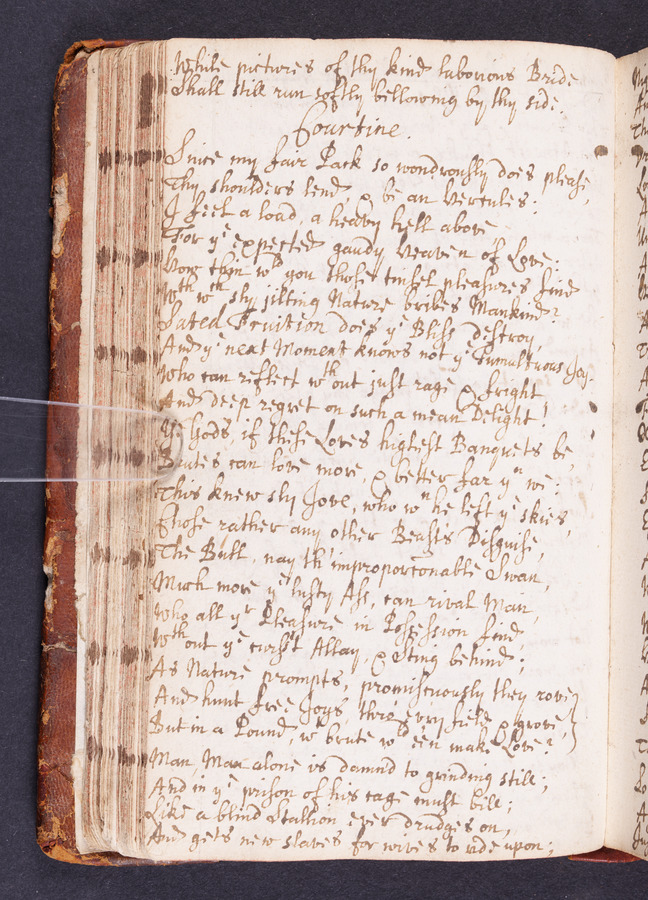 While pictures of thy kind laborious Bride
Shall still run softly bellowing by thy side.
Courtine.
Since my fair Pack so wondrously does please,
Thy shoulders lend, & be an Hercules:
I feel a load, a heavy hell above
For yᵉ expected gaudy Heaven of Love:
How then wᵈ you those tinsel pleasures find
Wᵗʰ wᶜʰ sly jilting Nature bribes Mankind?
Sated Fruition does yᵉ Bliss destroy,
And yᵉ next Moment knows not yᵉ Tumultuous Joy.
Who can reflect wᵗʰout just rage & fright
And deep regret on such a mean Delight!
Ye Gods, if these Loves highest Banquets be,
Brutes can love more, & better far yⁿ we:
This knew sly Jove, who wⁿ he left yᵉ skies,
Chose rather any other Beasts Disguise,
The Bull, nay th' improportionable Swan,
Much more yᵉ lusty Ass, can rival Man,
Who all yʳ Pleasure in Possession find,
Wᵗʰout yᵉ curs't Allay, & Sting behind;
As Nature prompts, promiscuously they rove,
And hunt free Joys thro' evry field & grove,
But in a Pound, wᵗ brute wᵈ e'en make Love?
Man, Man alone is damn'd to grinding still;
And in yᵉ prison of his cage must bill;
Like a blind Stallion ever drudges on,
And gets new slaves for wives to ride upon;